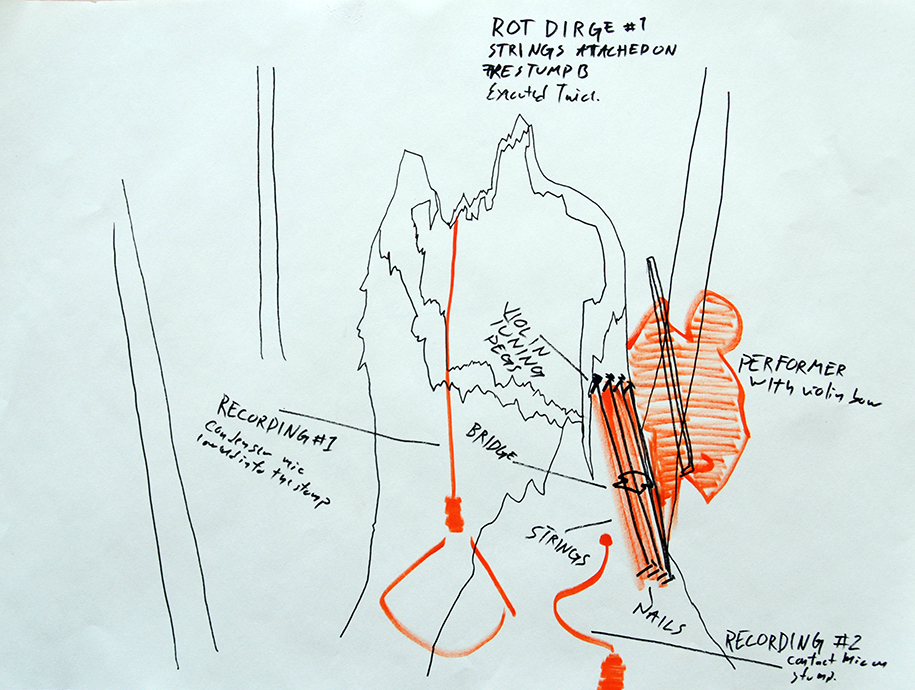 ROT DIRGE #1
STRINGS ATACHED ON
TRESTUMP B
Executed Twice.
VIOLIN
TUNING
PEGS
PERFORMER
with violin bow
RECORDING #1
Condenser mic
lowered into the stump
BRIDGE
STRINGS
NAILS
RECORDING #2
contact mic on
stump.